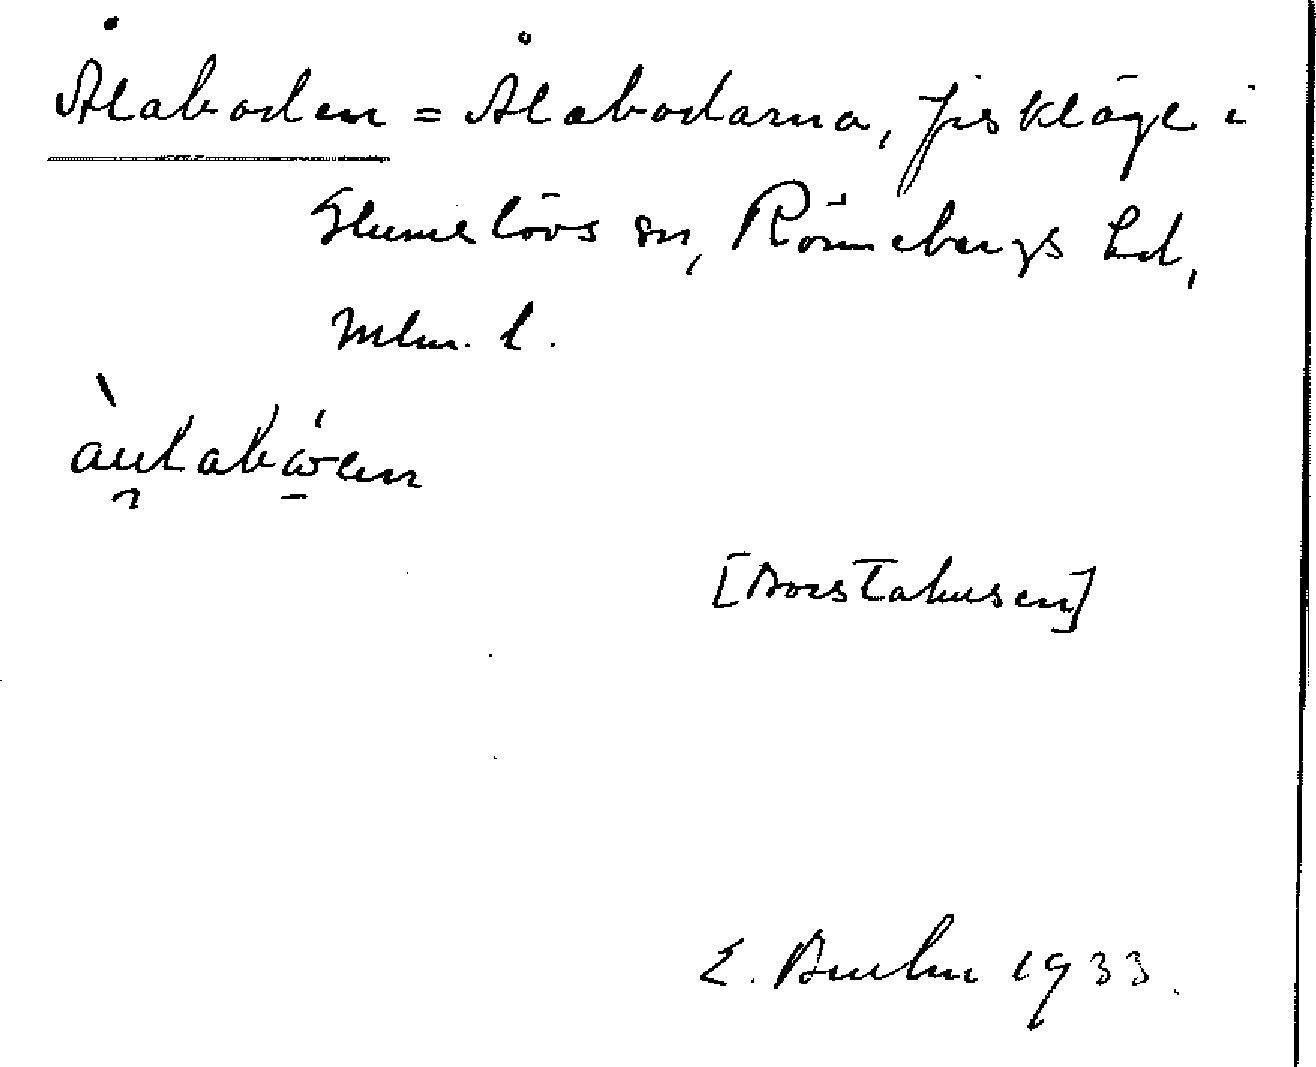 Ålaboden = Ålabodarna, fiskläge i
Glumslövs sn, Rönnebergs hd,
Mlm. l.
[Borstahusen]
E. 1933.